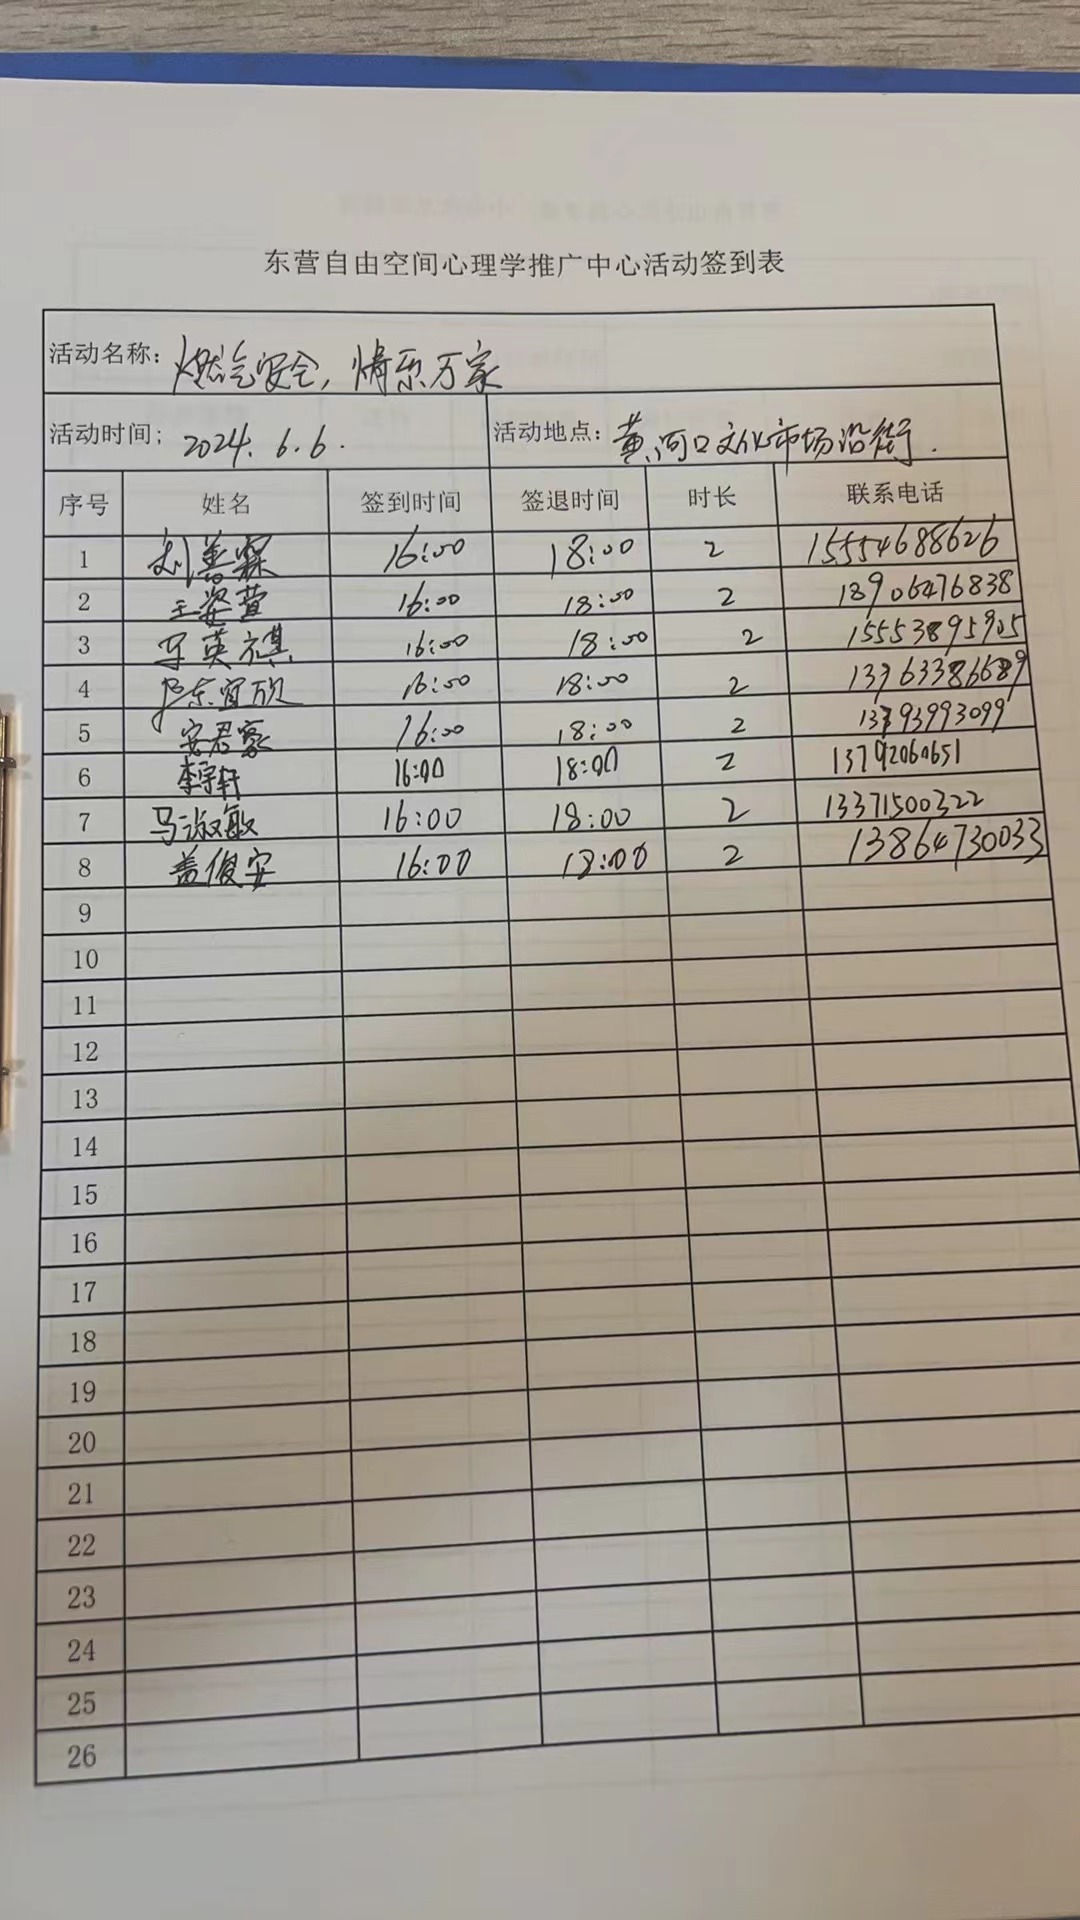 东营自由空间心理学推广中心活动签到表
活动名称: 燃气安全, 情系万家
活动时间; 2024. 6. 6. 活动地点: 黄河口文化市场沿街.
序号 姓名 签到时间 签退时间 时长 联系电话
1 刘善霖 16:00 18:00 2 15554688626
2 王姿萱 16:00 18:00 2 18906476838
3 马英祺 16:00 18:00 2 15553895905
4 东宜欣 16:00 18:00 2 13963386689
5 安君豪 16:00 18:00 2 13793993099
6 李宇轩 16:00 18:00 2 13792060651
7 马淑敏 16:00 18:00 2 13371500322
8 盖俊安 16:00 18:00 2 13864730033
9
10
11
12
13
14
15
16
17
18
19
20
21
22
23
24
25
26